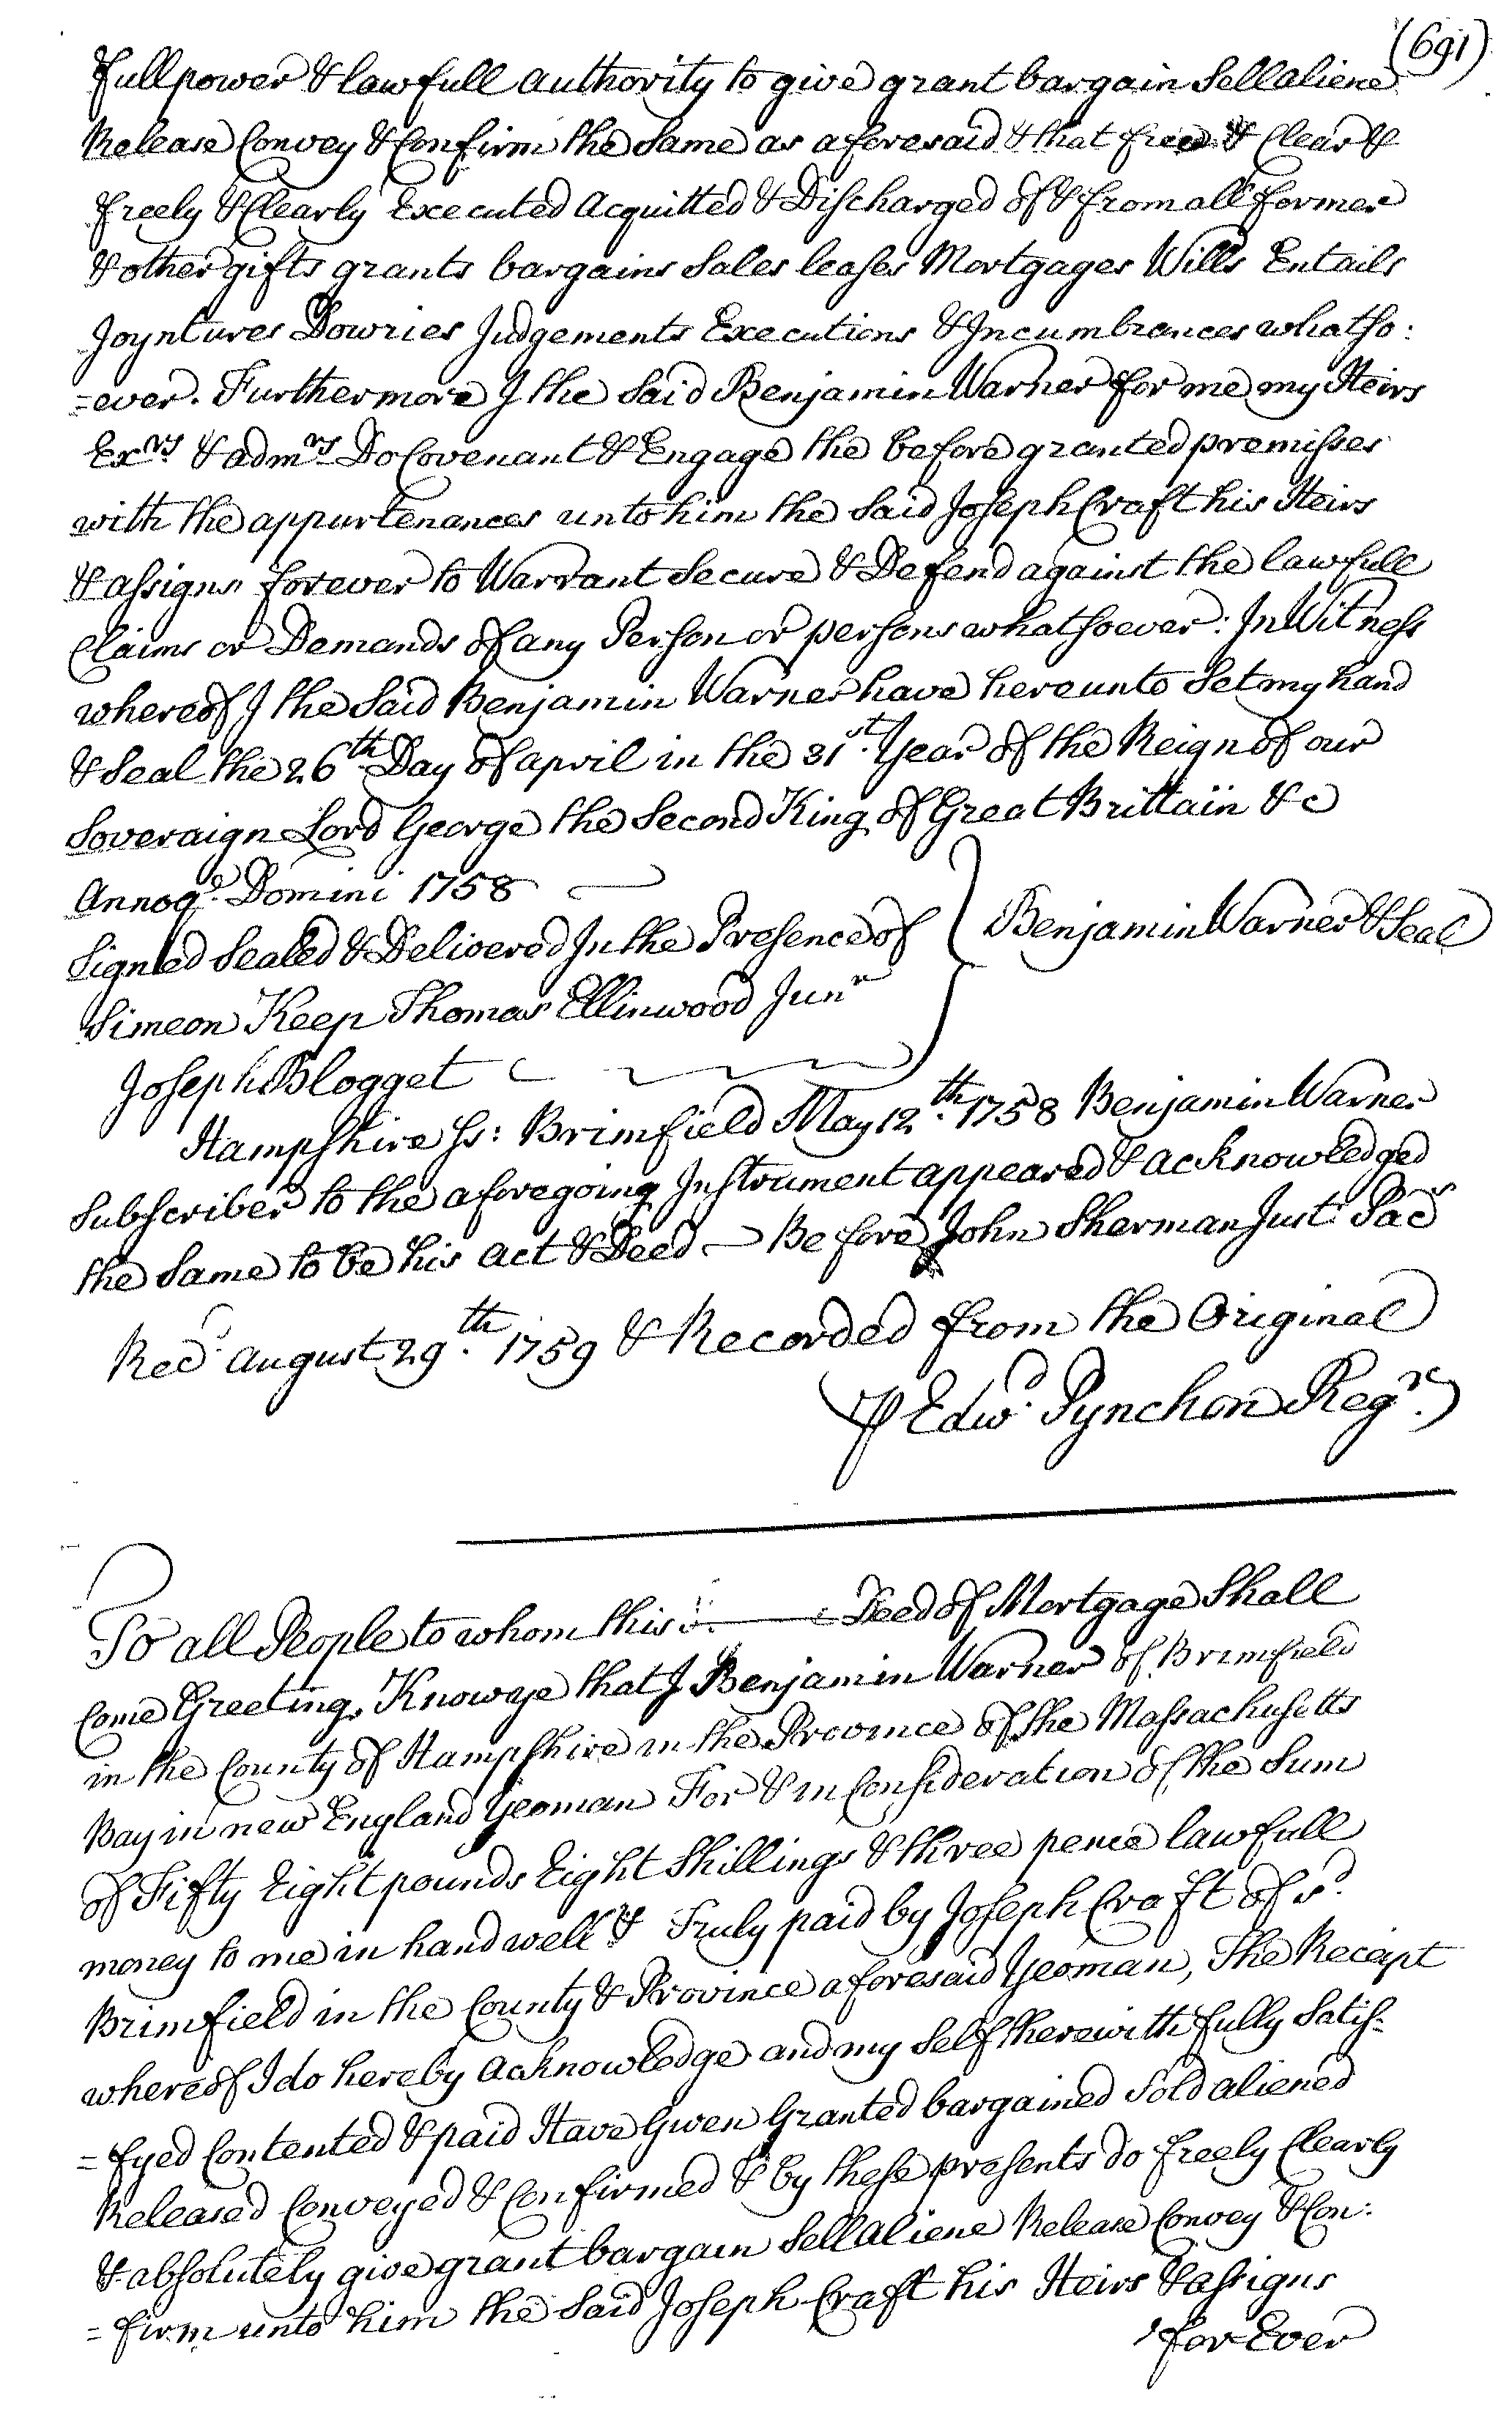 (691)
full power & lawfull authority to give grant bargain Sell aliene
Release Convey & Confirm the Same as aforesaid & that free & Clear &
freely & Clearly Executed Acquitted & Discharged of & from all former
& other gifts grants bargains Sales leases Mortgages Wills Entails
Joyntures Dowries Judgements Executions & Incumbrances whatso:
=ever. Furthermore I the Said Benjamin Warner for me my Heirs
Exrs & admrs Do Covenant & Engage the before granted premisses
with the appurtenances unto him the Said Joseph Craft his Heirs
& assigns forever to Warrant Secure & Defend against the lawfull
Claims or Demands of any Person or persons whatsoever: In Witness
whereof I the Said Benjamin Warner have hereunto Set my hand
& Seal the 26th Day of april in the 31st. Year of the Reign of our
Soveraign Lord George the Second King of Great Brittain &c
Annoqd. Domini 1758
Signed Sealed & Delivered In the Presence of } Benjamin Warner & Seal
Simeon Keep Thomas Ellinwood Junr
Joseph Blogget
Hampshire Ss: Brimfield May 12th. 1758 Benjamin Warner
Subscriber to the aforegoing Instrument appeared & acknowledged
the Same to be his act & Deed — Before John Sherman Just. Pacs
Recd. august 29th. 1759 & Recorded from the Original
⅌ Edwd. Pynchon Regr.
To all People to whom this Deed of Mortgage Shall
Come Greeting, Know ye that I Benjamin Warner of Brimfield
in the County of Hampshire in the Province of the Massachusetts
Bay in new England Yeoman For & in Consideration of the Sum
of Fifty Eight pounds Eight Shillings & three pence lawfull
money to me in hand well & Truly paid by Joseph Craft of sd.
Brimfield in the County & Province aforesaid Yeoman, The Receipt
whereof I do hereby acknowledge and my Self therewith fully Satis=
=fyed Contented & paid Have Given Granted bargained Sold aliened
Released Conveyed & Confirmed & by these presents do freely Clearly
& absolutely give grant bargain Sell aliene Release Convey & Con:
=firm unto him the Said Joseph Craft his Heirs & assigns
for Ever